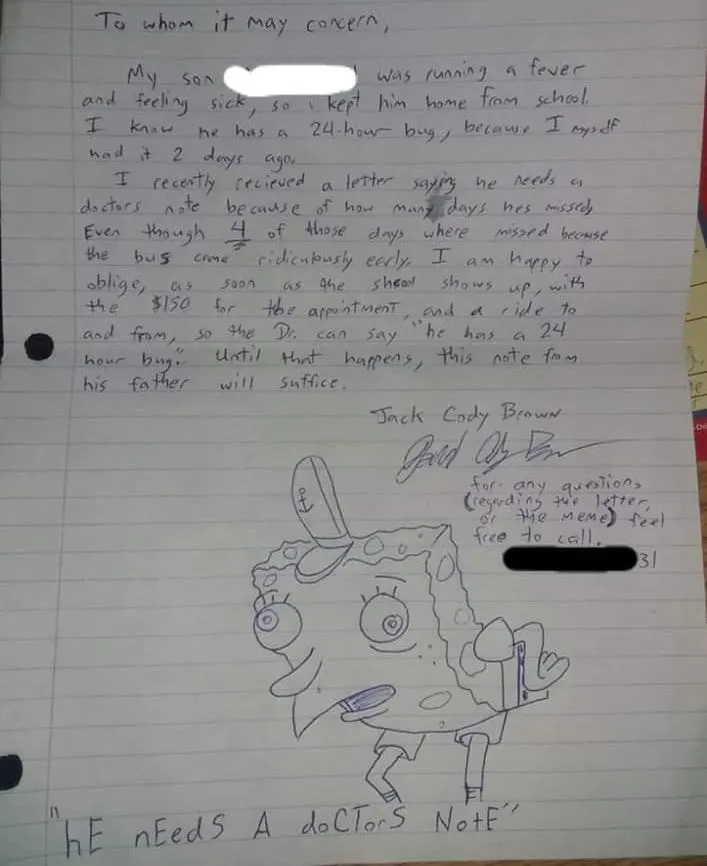 To whom it may concern,
My son was running a fever
and feeling sick, so i kept him home from school.
I know he has a 24-hour bug, because I myself
had it 2 days ago.
I recently recieved a letter saying he needs a
doctors note because of how many days hes missed,
Even though 4 of those days where missed because
the bus came ridiculously early. I am happy to
oblige, as soon as the shool shows up, with
the $150 for the appointment, and a ride to
and from, so the Dr. can say "he has a 24
hour bug". Until that happens, this note from
his father will suffice.
Jack Cody Brown
for any questions
(regarding the letter,
or the meme) feel
free to call.
31
"hE nEEdS A doCTorS NotE"